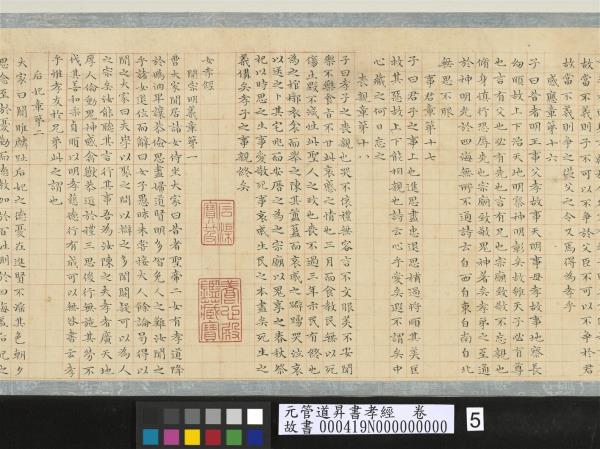 故當不義則子不可以不爭於父臣不可以不爭於君
故當不義則爭之從父之令又焉得為孝乎
感應章第十六
子曰昔者明王事父孝故事天明事母孝故事地察長
幼順故上下治天地明察神明彰矣故雖天子必有尊
也言有父也必有先也言有兄也宗廟致敬不忘親也
脩身慎行恐辱先也宗廟致敬鬼神著矣孝弟之至通
於神明光於四海無所不通詩云自西自東自南自北
無思不服
事君章第十七
子曰君子之事上也進思盡忠退思補過將順其美匡
救其惡故上下能相親也詩云心乎愛矣遐不謂矣中
心藏之何日忘之
喪親章第十八
子曰孝子之喪親也哭不偯禮無容言不文服美不安聞
樂不樂食旨不甘此哀慼之情也三日而食教民無以死
傷生毀不滅性此聖人之政也喪不過三年示民有終也
為之棺椁衣衾而舉之陳其簠簋而哀慼之擗踊哭泣哀
以送之卜其宅兆而安厝之為之宗廟以鬼享之春秋祭
祀以時思之生事愛敬死事哀慼生民之本盡矣死生之
義備矣孝子之事親終矣
石渠寶笈
養心殿鑑藏寶
女孝經
開宗明義章第一
曹大家閒居諸女侍坐大家曰昔者聖帝二女有孝道降
於媯汭卑讓恭儉思盡婦道賢明多智免人之難汝聞之
乎諸女退位而辭曰女子愚昧未嘗接大人餘論曷得以
聞之大家曰夫學以聚之問以辯之多聞闕疑可以為人
之宗矣汝能聽其言行其事吾為汝陳之夫孝者廣天地
厚人倫動鬼神感禽獸恭近於禮三思後行無施其勞不
伐其善和柔貞順仁明孝慈德行有成可以無咎書云孝
乎惟孝友于兄弟此之謂也
后妃章第二
大家曰關雎麟趾后妃之德憂在進賢不淫其色朝夕
思念至於憂勤而德教加於百姓刑於四海蓋后妃之
元管道昇書孝經 卷
故書 000419N000000000
5